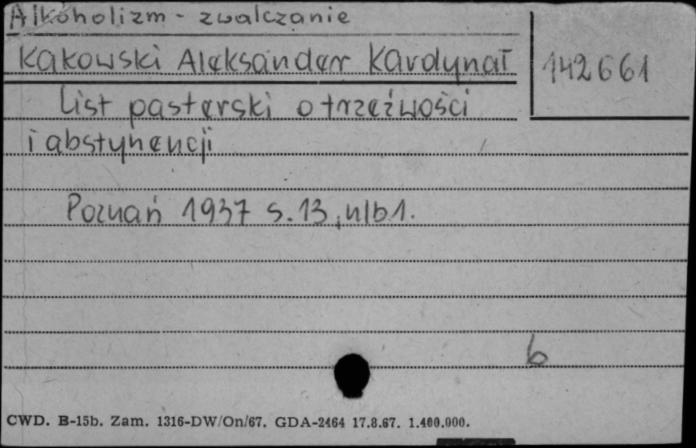 Alkoholizm - zwalczanie
Kakowski Aleksander Kardynał
142661
List pasterski o trzeźwości
i abstynencji
Poznań 1937 s. 13, nlb 1.
b
CWD. B-15b. Zam. 1316-DW/On/67. GDA-2464 17.8.67. 1.400.000.